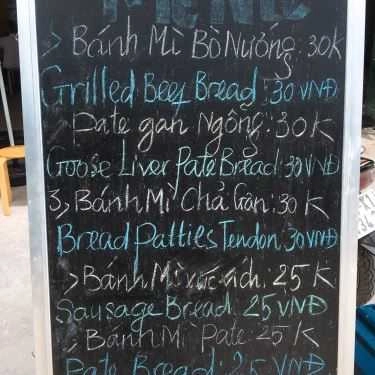 MENU
> Bánh Mì Bò Nướng: 30K
Grilled Beef Bread: 30 VNĐ
Pate gan Ngỗng: 30K
Goose Liver Pate Bread: 30 VNĐ
3, > Bánh Mì Chả Gân: 30K
Bread Patties Tendon: 30 VNĐ
> Bánh Mì xúc xích: 25K
Sausage Bread: 25 VNĐ
> Bánh Mì Pate: 25K
Pate Bread: 25 VNĐ